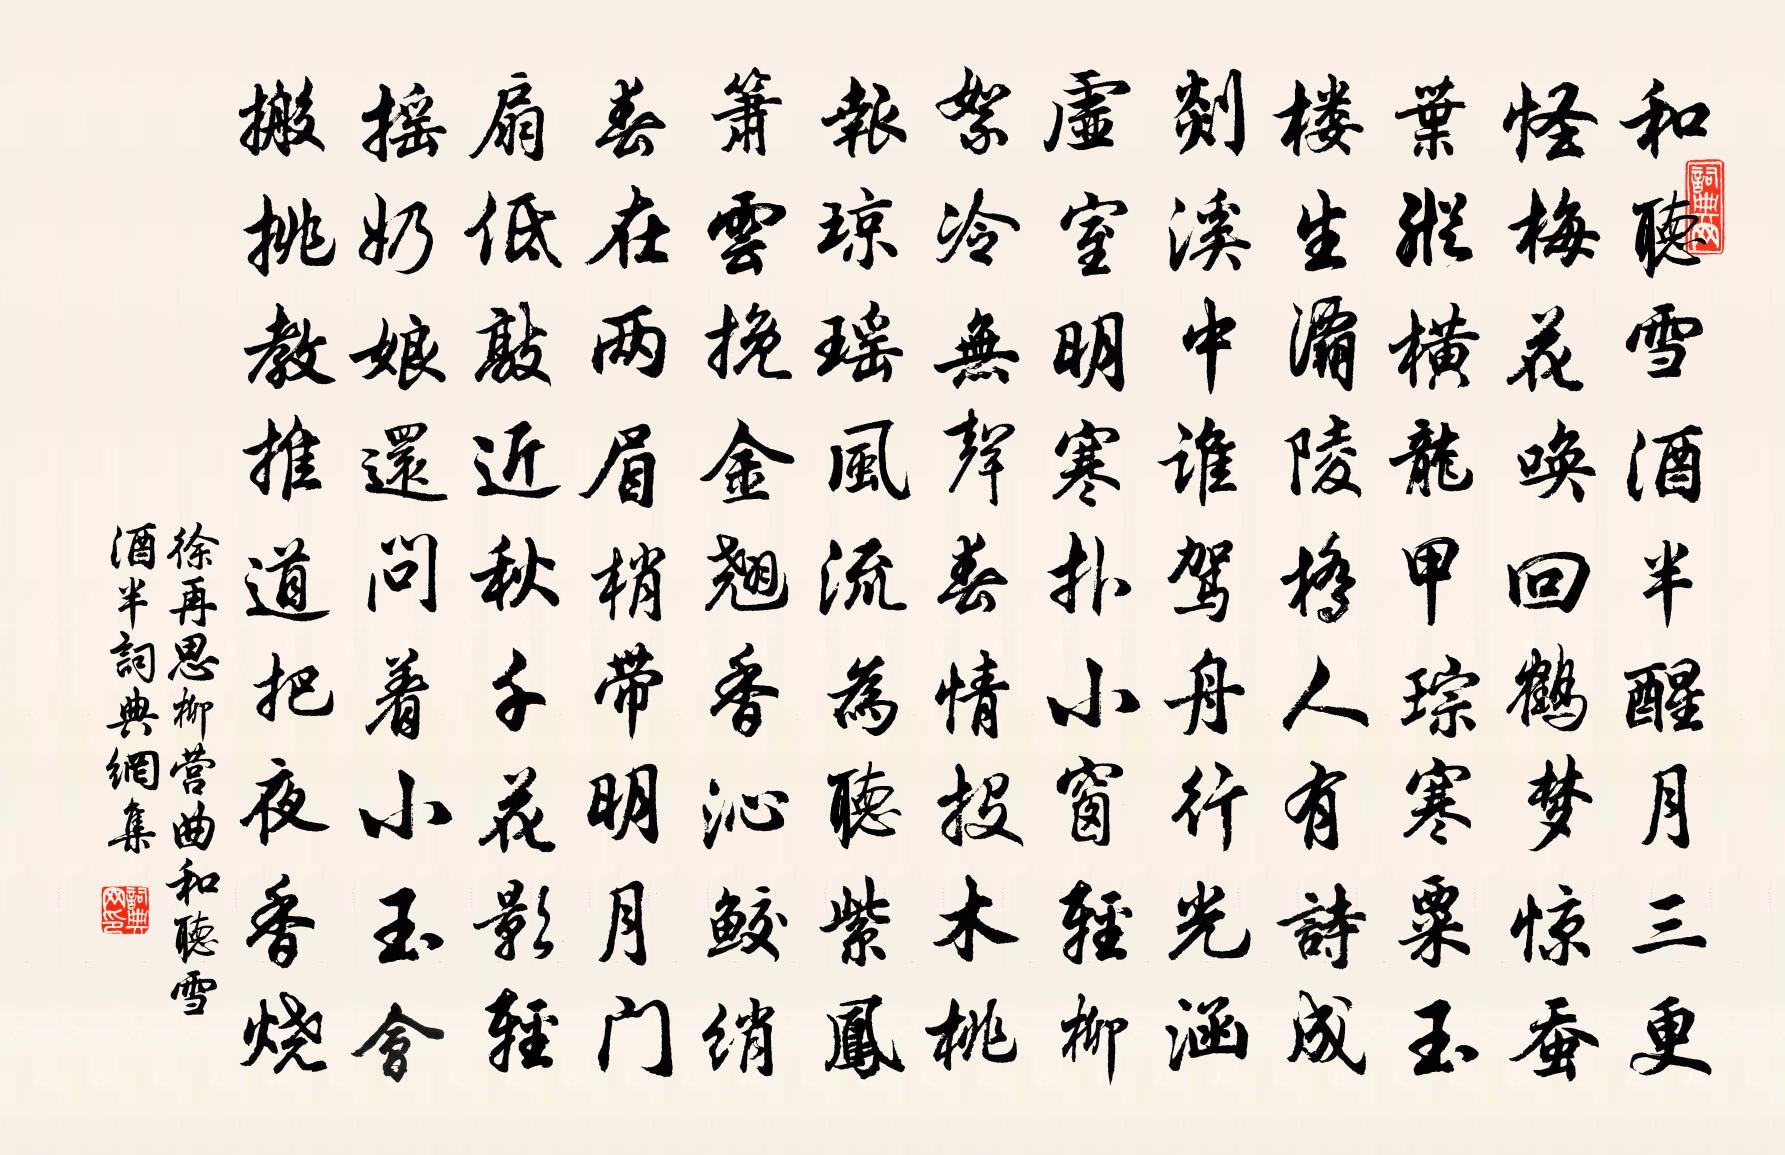 和聽雪酒半醒月三更
怪梅花唤回鹤梦惊蚕
葉縱横龍甲琮寒粟玉
楼生灞陵橋人有詩成
剡溪中谁驾舟行光涵
虛室明寒扑小窗輕柳
絮冷無聲春情投木桃
報琼瑶風流為聽紫鳳
箫雲挽金翘香沁鲛绡
春在两眉梢带明月门
扇低敲近秋千花影輕
摇奶娘還问着小玉會
搬挑教推道把夜香烧
徐再思柳营曲和聽雪
酒半詞典網集
詞典网
詞典网印